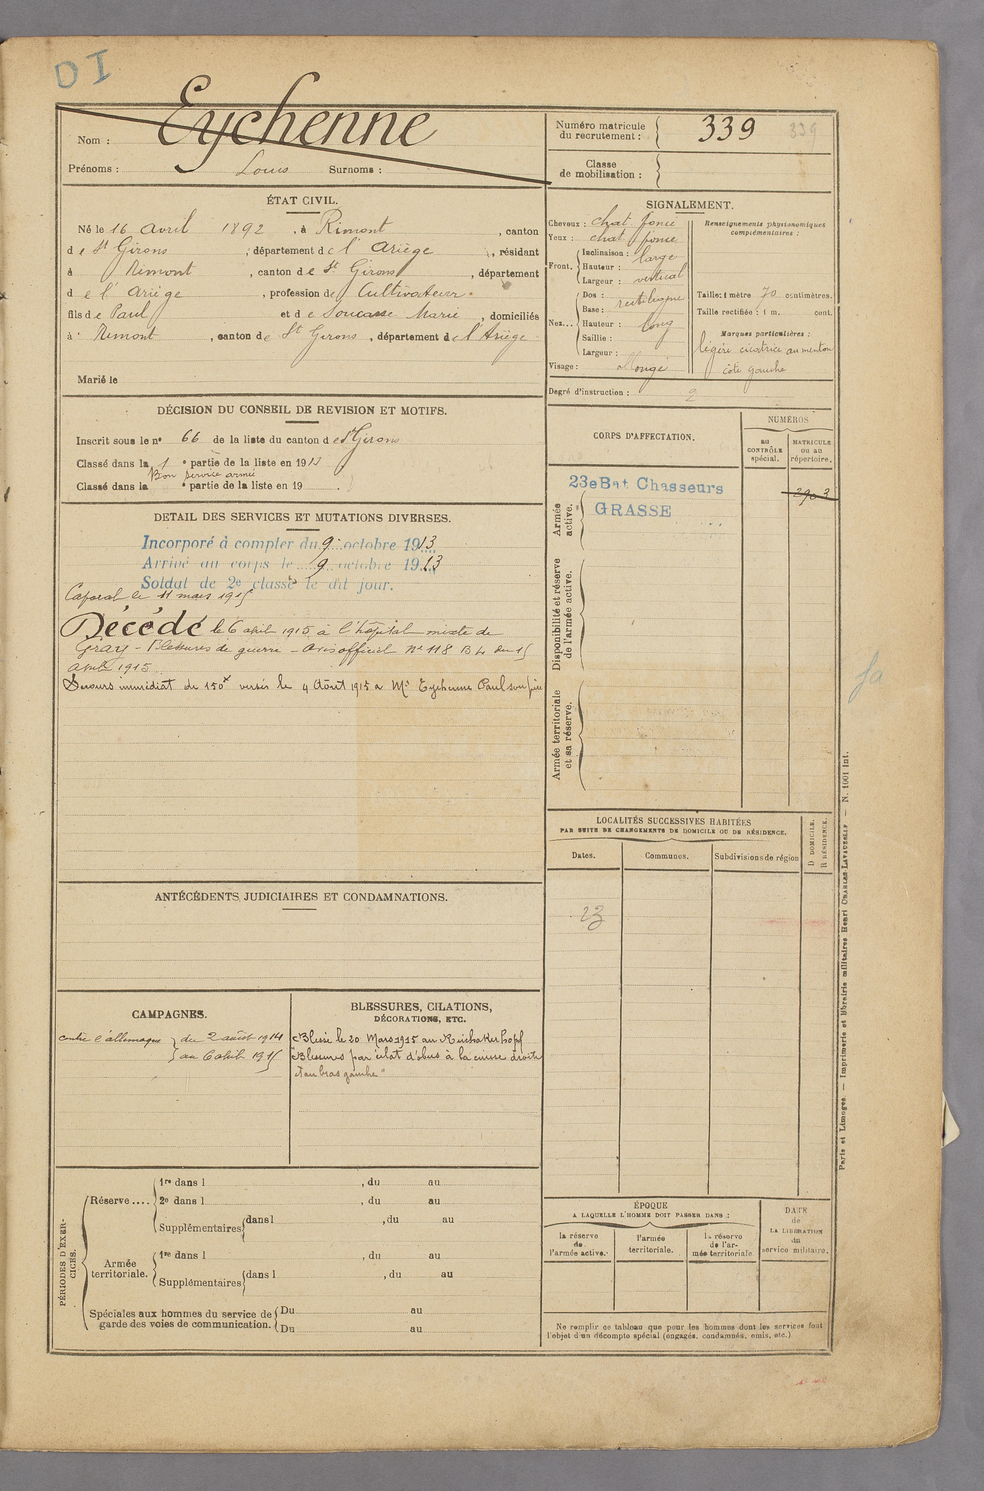 DI
Nom : Eychenne
Prénoms : Louis Surnoms :
Numéro matricule du recrutement : 339 339
Classe de mobilisation :
ÉTAT CIVIL.
Né le 16 avril 1892, à Rimont, canton
de St Girons ; département de l'Ariège, résidant
à Rimont, canton de St Girons, département
de l'Ariège, profession de Cultivateur.
fils de Paul et de Soucasse Marie, domiciliés
à Rimont, canton de St Girons, département de l'Ariège
Marié le
SIGNALEMENT.
Cheveux : chat. foncé
Yeux : chat foncé
Front. Inclinaison : large
Hauteur : vertical
Largeur :
Nez... Dos : rectiligne
Base :
Hauteur : long
Saillie :
Largeur :
Visage : allongé
Renseignements physionomiques complémentaires :
Taille : 1 mètre 70 centimètres.
Taille rectifiée : 1 m. cent.
Marques particulières :
légère cicatrice au menton
côté gauche
Degré d'instruction : 2
DÉCISION DU CONSEIL DE REVISION ET MOTIFS.
Inscrit sous le n° 66 de la liste du canton de St Girons
Classé dans la 1e partie de la liste en 1913
Bon service armé
Classé dans la e partie de la liste en 19 .
DETAIL DES SERVICES ET MUTATIONS DIVERSES.
Incorporé à compter du 9 octobre 1913
Arrivé au corps le 9 octobre 1913
Soldat de 2e classe le dit jour.
Caporal le 11 mars 1915
Décédé le 6 avril 1915 à l'hôpital mixte de
Gray - Blessures de guerre - avis officiel N° 118 B4 du 15
avril 1915.
Secours immédiat de 150f versés le 4 Août 1915 a Mr Eychenne Paul son père
CORPS D'AFFECTATION.
NUMÉROS
AU CONTRÔLE spécial.
MATRICULE ou au répertoire.
Armée active.
23e Bat Chasseurs
GRASSE
2903
Disponibilité et réserve de l'armée active.
Armée territoriale et sa réserve.
fa
LOCALITÉS SUCCESSIVES HABITÉES
PAR SUITE DE CHANGEMENTS DE DOMICILE OU DE RÉSIDENCE.
Dates.
Communes.
Subdivisions de région
D DOMICILE.
R RÉSIDENCE.
23
ANTÉCÉDENTS JUDICIAIRES ET CONDAMNATIONS.
CAMPAGNES.
contre l'allemagne du 2 août 1914
au 6 avril 1915
BLESSURES, CITATIONS,
DÉCORATIONS, ETC.
Blessé le 20 Mars 1915 au Reichakerkopf
"Blessures par éclat d'obus à la cuisse droite
et au bras gauche"
PÉRIODES D'EXERCICES.
Réserve.... 1re dans l , du au
2e dans l , du au
Supplémentaires dans l , du au
Armée territoriale. 1re dans l , du au
Supplémentaires dans l , du au
Spéciales aux hommes du service de garde des voies de communication. Du au
Du au
ÉPOQUE
A LAQUELLE L'HOMME DOIT PASSER DANS :
la réserve de l'armée active.
l'armée territoriale.
la réserve de l'armée territoriale.
DATE de LA LIBÉRATION du service militaire.
Ne remplir ce tableau que pour les hommes dont les services font
l'objet d'un décompte spécial (engagés, condamnés, omis, etc.)
Paris et Limoges. — Imprimerie et librairie militaires Henri CHARLES-LAVAUZELLE — N. 1001 Int.